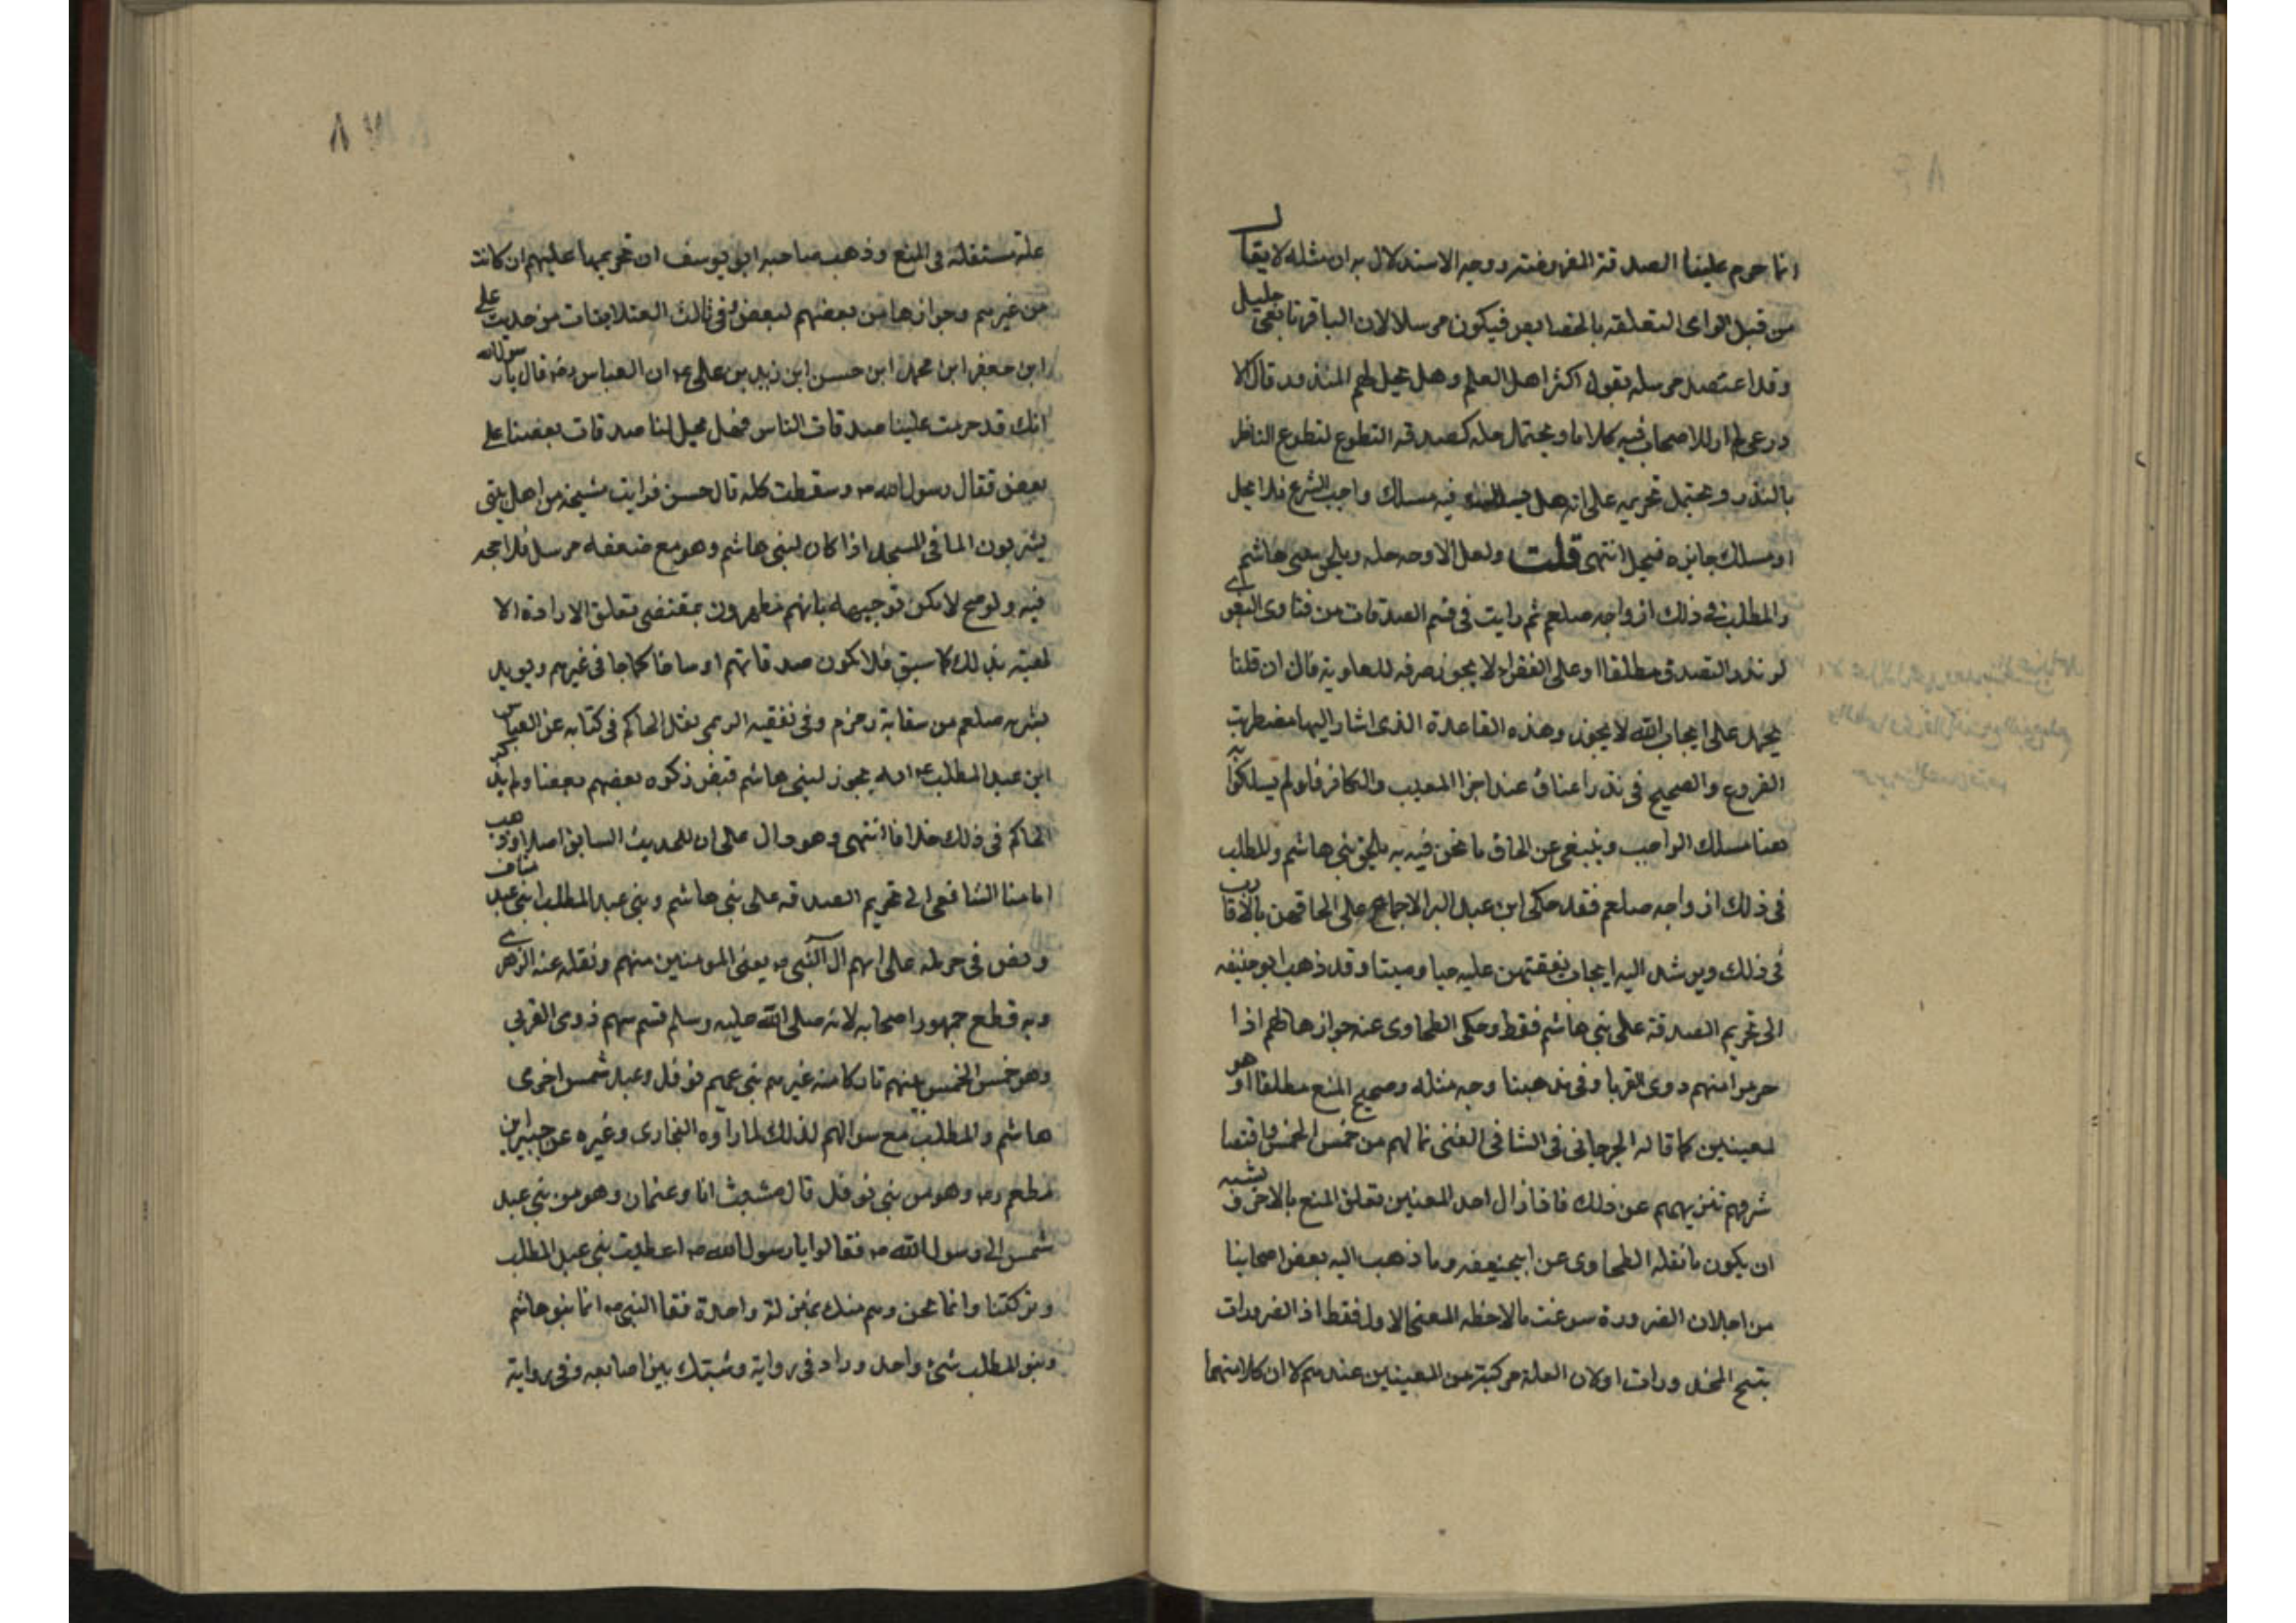 انما حرم علينا الصدقة المفروضة ووجه الاستدلال به ان مثله لا يقال
من قبل الراى لتعلقه بالخصايص فيكون مرسلا لان الباقر تابعى جليل
وقد اعتضد مرسله بقول اكثر اهل العلم وهل يحل لهم المنذور قال
بالنذر ويحتمل تحريمه على انه هل يسلك فيه مسلك واجب الشرع فلا يحل
او مسلك جايزه فيحل انتهى قلت ولعل الاوجه حله ويلحق ببنى هاشم
والمطلب فى ذلك ازواجه صلعم ثم رايت فى قسم الصدقات من فتاوى البغوى
لو نذر التصدق مطلقا او على الفقراء لا يجوز صرفه للعلوية قال ان قلنا
يحمل على ايجاب الله لا يجوز وهذه القاعدة الذى اشار اليها مضطربت
الفروع والصحيح فى نذر اعتاق عبد اجزا المعيب والكافر فلو لم يسلكوا به
هنا مسلك الواجب وينبغى عن الحاق ما نحن فيه به ويلحق ببنى هاشم والمطلب
فى ذلك ازواجه صلعم فقد حكى ابن عبد البر الاجماع على الحاقهن بالاقارب
فى ذلك ويرشد اليه ايجاب نفقتهن عليه حيا وميتا وقد ذهب ابو حنيفه
الى تحريم الصدقة على بنى هاشم فقط وحكى الطحاوى عنه جوازها لهم اذا
حرموا سهم ذوى القربا وفى مذهبنا وجه مثله وصحيح المنع مطلقا اذ هو
لمعنيين كما قاله الجرجانى فى الشافى الغنى بما لهم من خمس الخمس واقتضا
شرفهم تنزيههم عن ذلك فاذا زال احد المعنيين تعلق المنع بالاخر ويشبه
ان يكون ما نقله الطحاوى عن ابيحنيفه وما ذهب اليه بعض اصحابنا
من اجل ان الضرورة سوغت ملاحظه المعنى الاول فقط اذ الضرورات
تبيح المحذورات او لان العلة مركبة من المعنيين عندهم لا ان كلا منهما
علة مستقله فى المنع وذهب صاحبه ابو يوسف ان تحريمها عليهم ان كانت
من غيرهم وجوازها من بعضهم لبعض وفى ثالث من حديث على
ابن جعفر ابن محمد ابن حسن ابن زيد بن على ان العباس رضه قال يا رسول الله
انك قد حرمت علينا صدقات الناس فهل يحل لنا صدقات بعضنا على
بعض فقال رسول الله وسقطت كلمه قال حسن فرايت مشيخة من اهل بيتى
يشربون الما فى المسجد اذا كان لبنى هاشم وهو مع ضعفه مرسل فلا حجه
فيه ولو صح لامكن توجيهه بانهم مطهرون بمقتضى تعلق الارادة الا
لهيته بذلك كما سبق فلا يكون صدقاتهم اوساخا كما جا فى غيرهم ويويد
بشربه صلعم من سقاية زمزم وفى تفقيه الريمى نقل الحاكم فى كتابه عن العباس
ابن عبد المطلب انه يجوز لبنى هاشم قبض زكوه بعضهم بعضا ولم يذكر
الحاكم فى ذلك خلافا انتهى وهو دال على ان للحديث السابق اصلا وذهب
امامنا الشافعى الى تحريم الصدقه على بنى هاشم وبنى عبد المطلب ابنى عبد مناف
ونص فى حرمله على انهم ال النبى يعنى المومنين منهم ونقله عنه الازهرى
وبه قطع جمهور اصحابه لانه صلى الله عليه وسلم قسم سهم ذوى القربى
وهو خمس الخمس بينهم تاركا منه غيرهم بنى عميهم نوفل وعبد شمس اخوى
هاشم والمطلب مع سوالهم لذلك لما رواه البخارى وغيره عن جبير بن
مطعم رضه وهو من بنى نوفل قال مشيت انا وعثمان وهو من بنى عبد
شمس الى رسول الله فقالوا يا رسول الله اعطيت بنى عبد المطلب
وتركتنا وانما نحن وهم منك بمنزلة واحدة فقا النبى انما بنو هاشم
وبنو المطلب شئ واحد وزاد فى رواية وشبك بين اصابعه وفى رواية